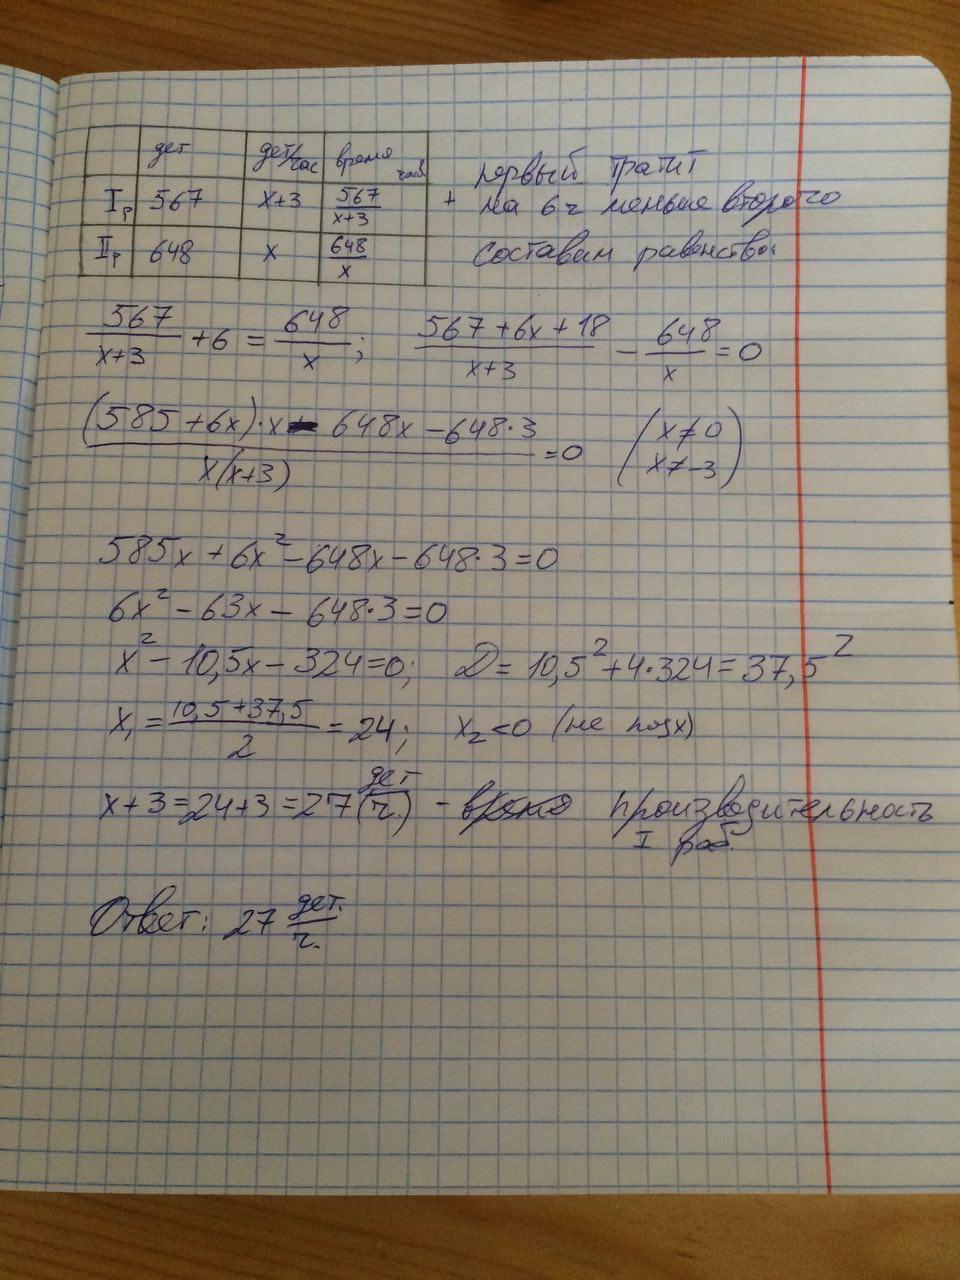 дет дет/час время час
I р 567 x+3 567/(x+3) + первый тратит
на 6ч меньше второго
II р 648 x 648/x составим равенство:
567/(x+3) + 6 = 648/x; (567+6x+18)/(x+3) - 648/x = 0
((585+6x)·x - 648x - 648·3)/(x(x+3)) = 0 (x≠0
x≠-3)
585x + 6x² - 648x - 648·3 = 0
6x² - 63x - 648·3 = 0
x² - 10,5x - 324 = 0; D = 10,5² + 4·324 = 37,5²
x₁ = (10,5+37,5)/2 = 24; x₂<0 (не подх)
x+3 = 24+3 = 27 (дет/ч.) - время производительность
I раб.
Ответ: 27 дет./ч.